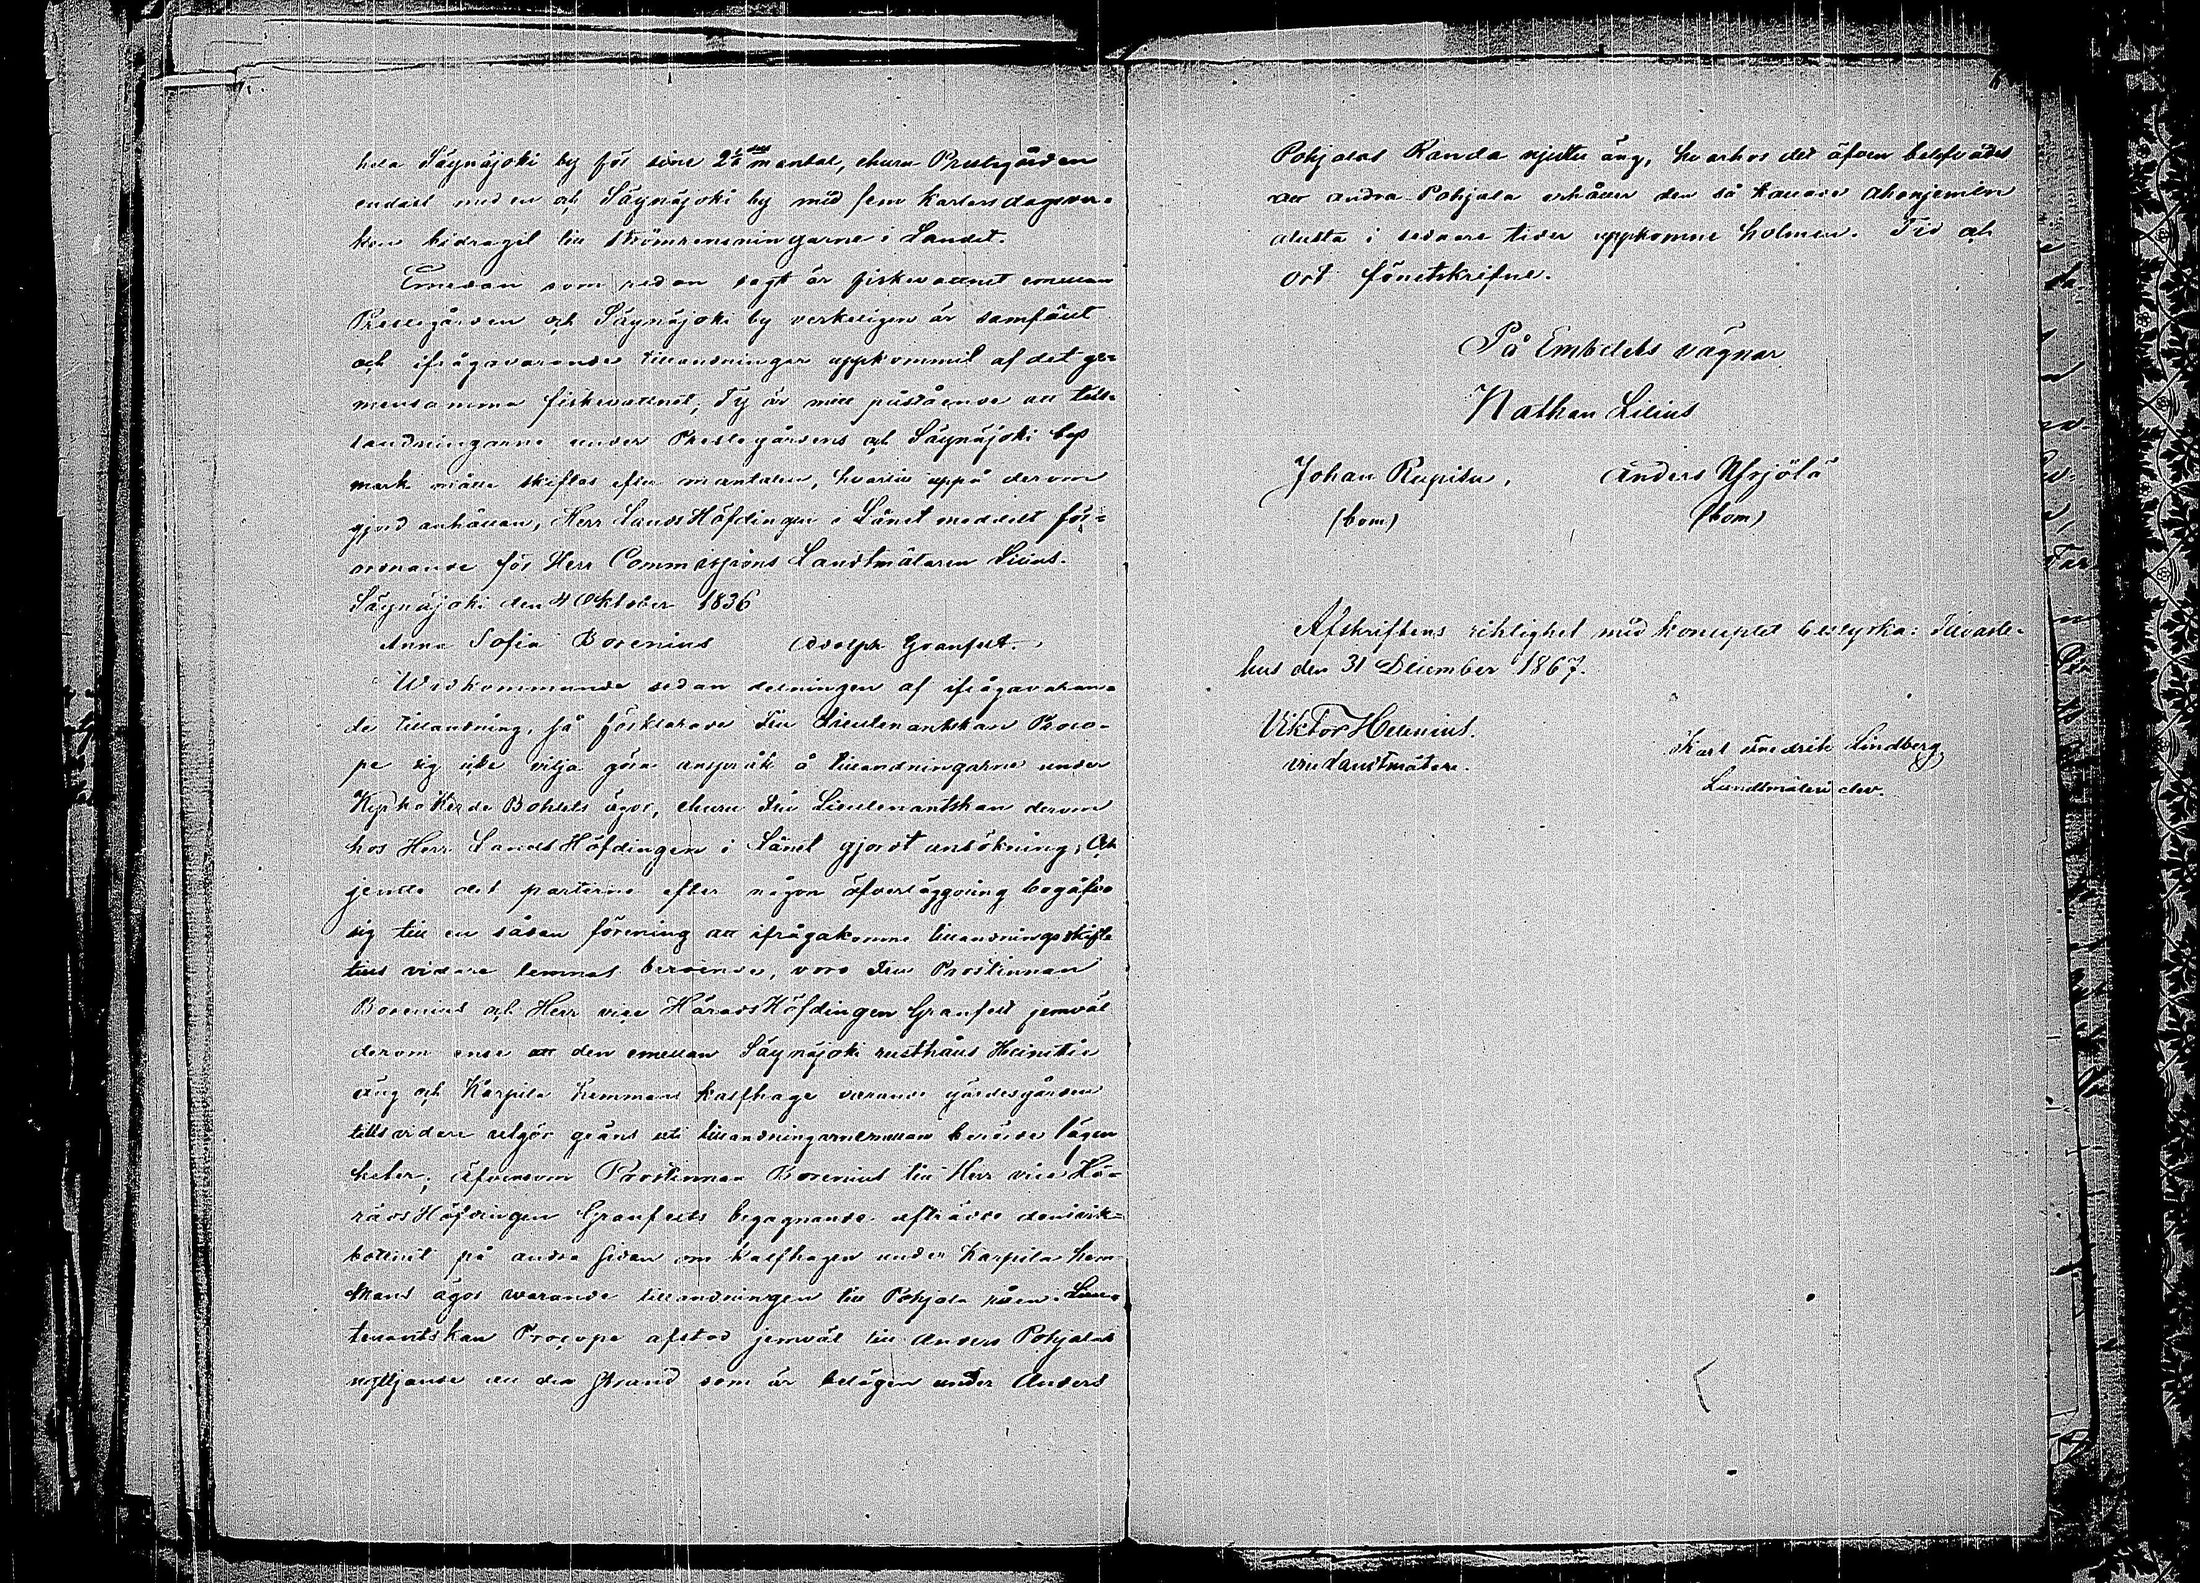 hela Säynäjoki by för sine 2 1/6 mantal, ehuru Prestegården
endast med en och Säynäjoki by med fem karlars dagsver-
ken bidragit till strömrensningarne i Landet.
Emedan som redan sagt är fiskevattnet emellan
Prestegården och Säynäjoki by verkeligen är samfält
och ifrågavarande tillandningar uppkommit af det ge-
mensamma fiskevattnet, Ty är mitt påstående att till-
landningarne under Prestegårdens och Säynäjoki bys
mark måtte skiftas efter mantalen, hvartill uppå derom
gjord anhållan, Herr LandsHöfdingen i Länet meddelt för-
ordnande för Herr Commissions Landtmätaren Lilius.
Säynäjoki den 4 Oktober 1836
Anna Sofia Borenius Adolph Granfelt.
Widkommande sedan delningen af ifrågavaran-
de tillandning, så förklarade Fru Lieutenantskan Proco-
pe sig icke vilja göra anspråk å tillandningarne under
Bohlets ägor, ehuru Fru Lieutenantskan derom
hos Herr LandsHöfdingen i Länet gjordt ansökning, Och
jemte det parterne efter någon öfverläggning begåfvo
sig till en sådan förening att ifrågakomne tillandningsskifte
tills vidare lemnas beroende, voro Fru Prostinnan
Borenius och Herr vice HäradsHöfdingen Granfelt jemväl
derom ense att den emellan Säynäjoki rusthålls
äng och Karpila hemmans kalfhage varande gärdesgården
tills vidare utgör gräns uti tillandningarne emellan berörde lägen
heter; äfvensom Prostinnan Borenius till Herr vice Hä-
radsHöfdingen Granfelts begagnande afträdde
på andra sidan om kalfhagen under Karpila hem-
mans ägor warande tillandningen till Pohjala råen. Lieu-
tenantskan Procope afstod jemväl till Anders Pohjalas
nyttjande all den strand som är belägen under Anders
Pohjalas Randa njettu äng, hvarhos det äfven beslöts
att andra Pohjala erhåller den så kallade
alusta i sednare tider uppkomne holmen. Tid och
ort förutskrifne.
På Embetets vägnar
Nathan Lilius
Johan Rupila, Anders Yrjölä
(bom) (bom)
Afskriftens riktighet med konceptet bestyrka: Tavaste-
hus den 31 December 1867.
Viktor Helenius. Karl Fredrik Lindberg
vice Landtmätare. Landtmäteri elev.